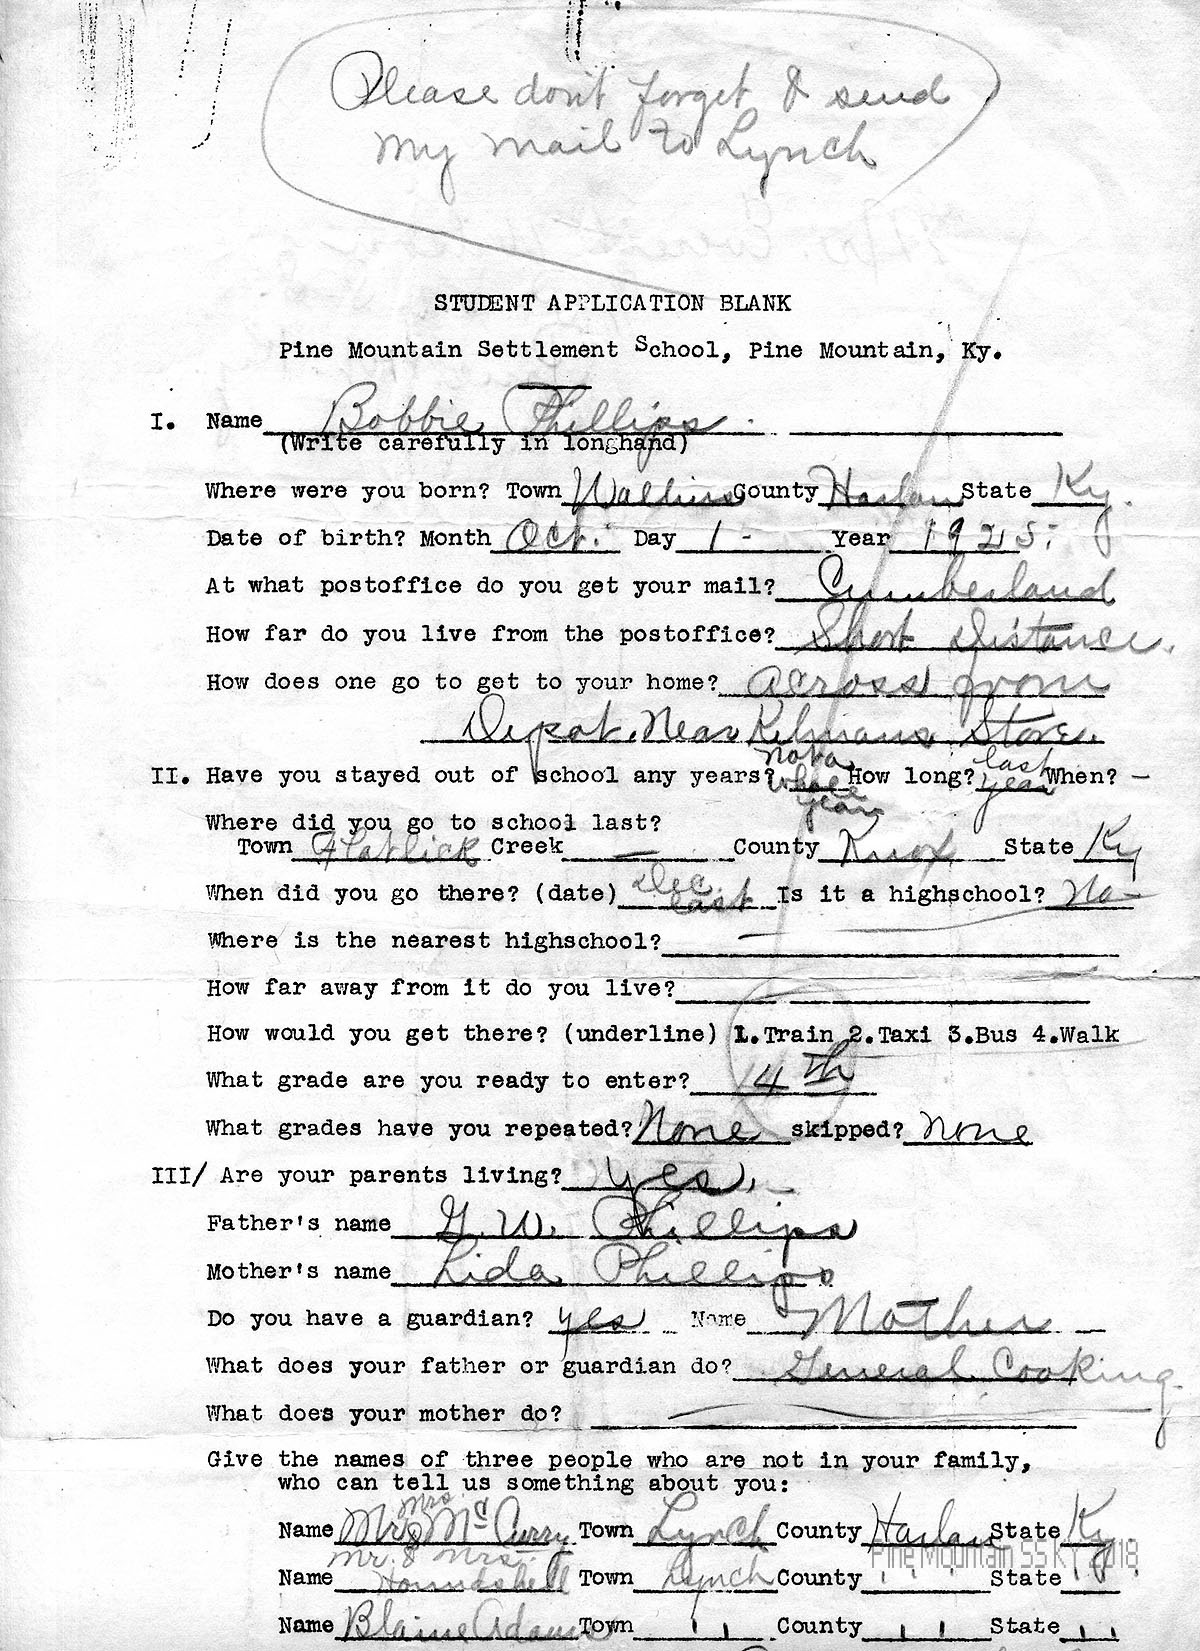 Please don't forget & send
my mail to Lynch
STUDENT APPLICATION BLANK
Pine Mountain Settlement School, Pine Mountain, Ky.
I. Name Bobbie Phillips
(Write carefully in longhand)
Where were you born? Town Wallins County Harlan State Ky.
Date of birth? Month Oct. Day 1 - Year 1925
At what postoffice do you get your mail? Cumberland
How far do you live from the postoffice? Short Distance.
How does one go to get to your home? across from
Depot. Near Store.
II. Have you stayed out of school any years? not a whole year How long? last year When? —
Where did you go to school last?
Town Flatlick Creek — County Knox State Ky
When did you go there? (date) Dec. last Is it a highschool? No
Where is the nearest highschool? —
How far away from it do you live?
How would you get there? (underline) 1.Train 2.Taxi 3.Bus 4.Walk
What grade are you ready to enter? 4th
What grades have you repeated? None skipped? none
III/ Are your parents living? yes.
Father's name G. W. Phillips
Mother's name Lida Phillips
Do you have a guardian? yes Name Mother
What does your father or guardian do? General Cooking
What does your mother do? —
Give the names of three people who are not in your family,
who can tell us something about you:
Name Mr & Mrs McCurry Town Lynch County Harlan State Ky
Pine Mountain SS KY 2018
Name Mr. & Mrs. Hounshell Town Lynch County " State "
Name Blaine Adams Town " County " State "